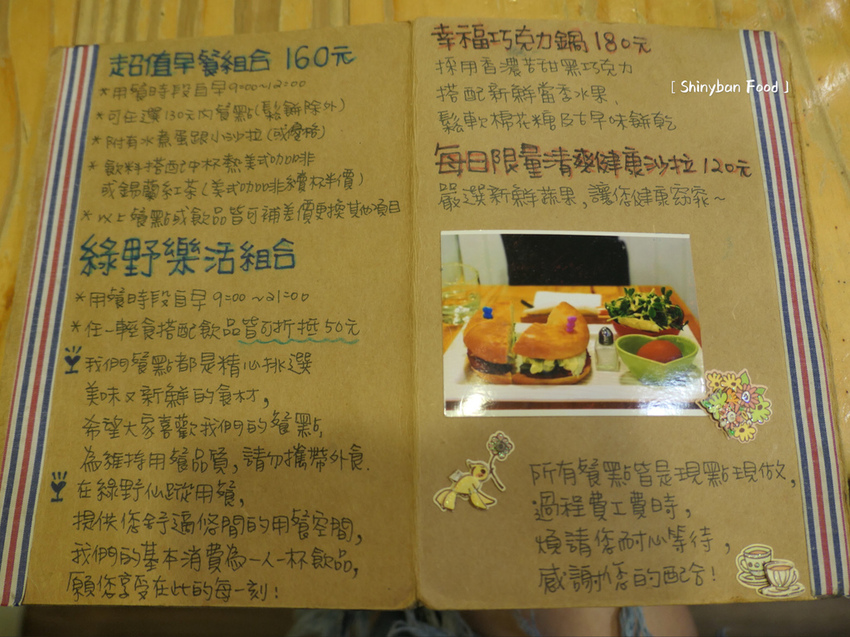 超值早餐組合 160元
*用餐時段自早9:00~12:00
*可任選130元內餐點(鬆餅除外)
*附有水煮蛋跟小沙拉(或優格)
*飲料搭配中杯熱美式咖啡
或錫蘭紅茶(美式咖啡續杯半價)
*以上餐點或飲品皆可補差價更換其他項目
綠野樂活組合
*用餐時段自早9:00~21:00
*任一輕食搭配飲品皆可折抵50元
我們餐點都是精心挑選
美味又新鮮的食材,
希望大家喜歡我們的餐點,
為維持用餐品質,請勿攜帶外食.
在綠野仙蹤用餐,
提供您舒適悠閒的用餐空間,
我們的基本消費為一人一杯飲品,
願您享受在此的每一刻!
幸福巧克力鍋180元
採用香濃苦甜黑巧克力
搭配新鮮當季水果、
鬆軟棉花糖及古早味餅乾
[ Shinyban Food ]
每日限量清爽健康沙拉120元
嚴選新鮮蔬果,讓您健康窈窕~
所有餐點皆是現點現做,
過程費工費時,
煩請您耐心等待,
感謝您的配合!